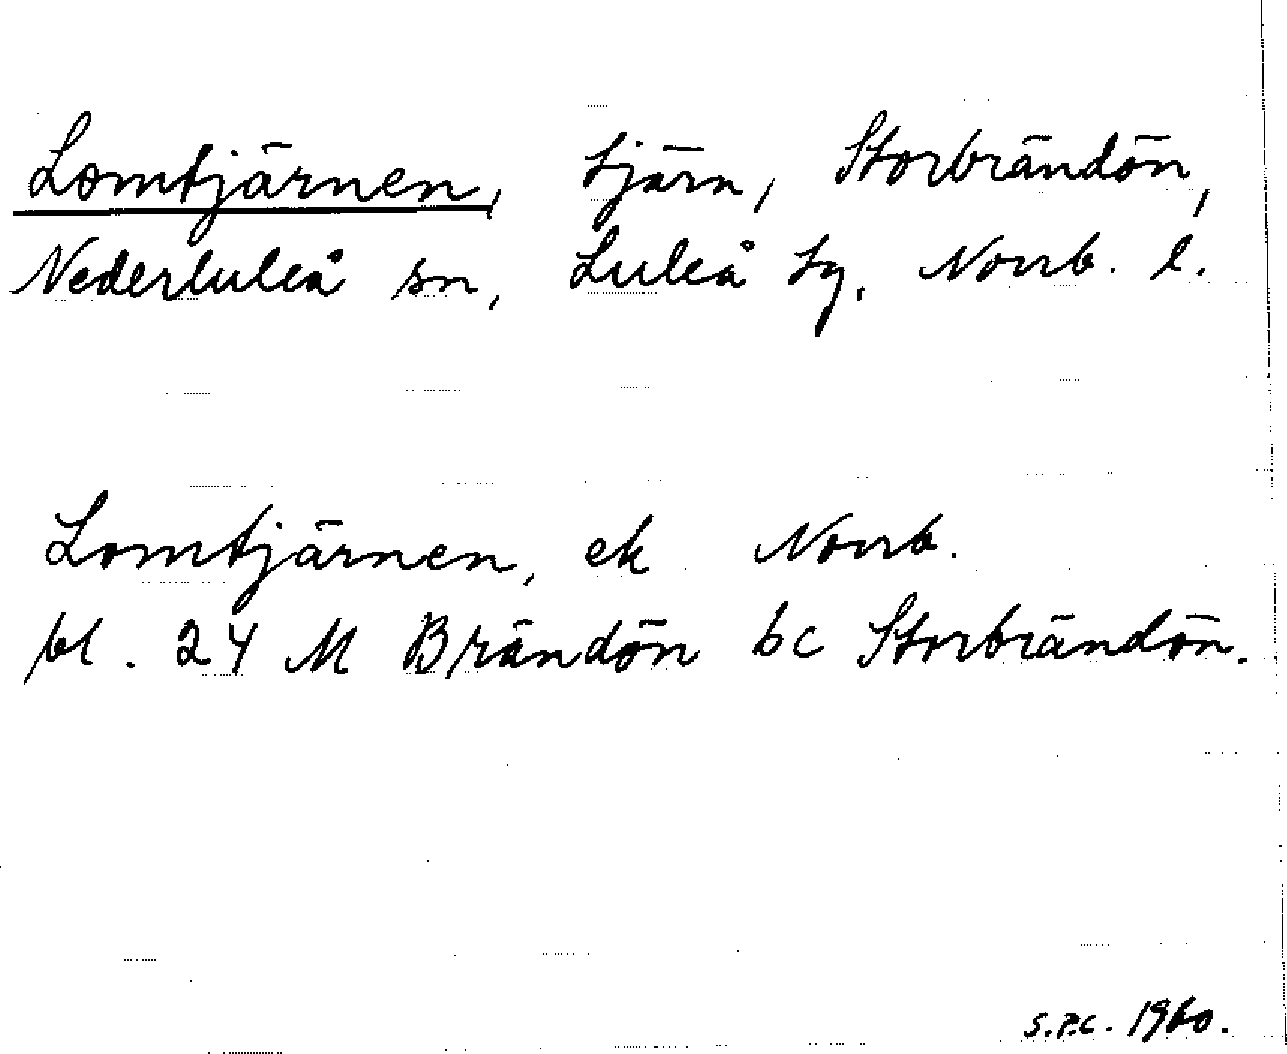 Lomtjärnen, tjärn, Storbrändön,
Nederluleå sn, Luleå tg, Norrb. l.
Lomtjärnen, ek Norrb.
bl. 24 M Brändön bc Storbrändön.
S.P.C. 1960.